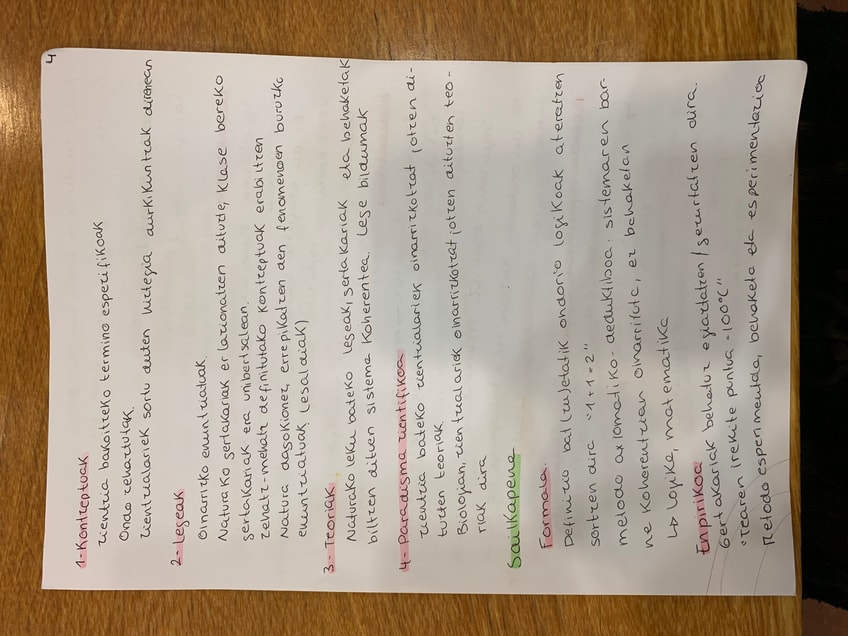 4
1-Kontzeptuak
zientzia bakoitzeko termino espezifikoak
Ondo zehaztuak
zientzialariek sortu duten hiztegia aurkikuntzak direnean
2-Legeak
Oinarrizko enuntziatuak
Naturako gertakariak erlazionatzen dituzte, klase bereko
gertakariak era unibertsalean.
zehatz-mehatz definitutako kontzeptuak erabiltzen
Natura dagokionez, errepikatzen den fenomenoen buruzko
enuntziatuak (esaldiak)
3-Teoriak
Naturako leku bateko legeak, gertakariak eta behaketak
biltzen dituen sistema koherentea. Lege bildumak
4-Paradigma zientifikoa
zientzia bateko zientzialariek oinarrizkotzat jotzen di-
tuzten teoriak
Biologian, zientzialariek oinarrizkotzat jotzen dituzten teo-
riak dira
Sailkapena
Formala.
Definizio bat(zu)etatik ondorio logikoak ateratzen
sortzen dira "1+1=2"
metodo axiomatiko-deduktiboa: sistemaren bar-
ne koherentzian oinarrituta, ez behaketan
↳ logika, matematika
Enpirikoa
Gertakariak behatuz egiaztatzen/gezurtatzen dira.
"Uraren irakite puntua =100°C"
Metodo esperimentala, behaketa eta esperimentazioa